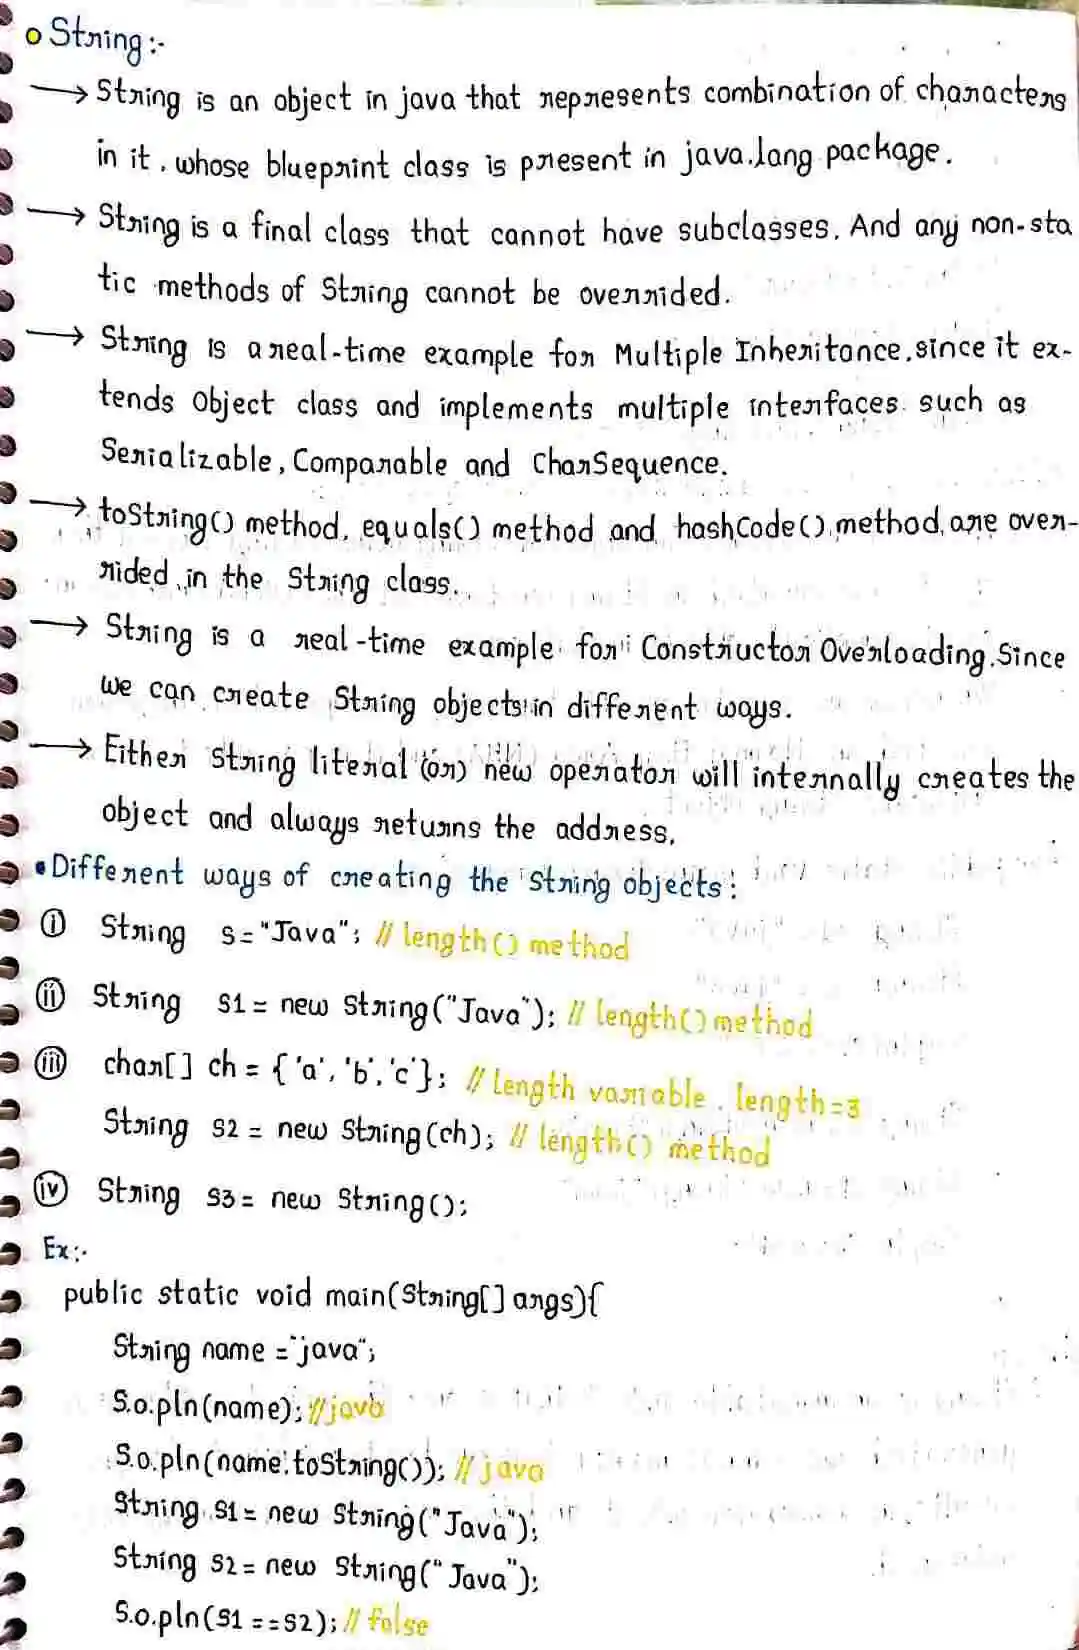 String :-
→ String is an object in java that represents combination of characters
in it. whose blueprint class is present in java.lang package.
→ String is a final class that cannot have subclasses. And any non-sta
tic methods of String cannot be overrided.
→ String is a real-time example for Multiple Inheritance, since it ex-
tends Object class and implements multiple interfaces such as
Serializable, Comparable and CharSequence.
→ toString() method, equals() method and hashCode() method are over-
rided in the String class.
→ String is a real-time example for Constructor Overloading. Since
we can create String objects in different ways.
→ Either String literal (or) new operator will internally creates the
object and always returns the address.
• Different ways of creating the String objects:
(i) String s="Java"; // length() method
(ii) String s1 = new String("Java"); // length() method
(iii) char[] ch = {'a', 'b', 'c'}; // length variable. length=3
String s2 = new String(ch); // length() method
(iv) String s3 = new String();
Ex:-
public static void main(String[] args){
String name ="java";
S.o.pln(name); //java
S.o.pln(name.toString()); //java
String s1 = new String("Java");
String s2 = new String("Java");
S.o.pln(s1 == s2); // false